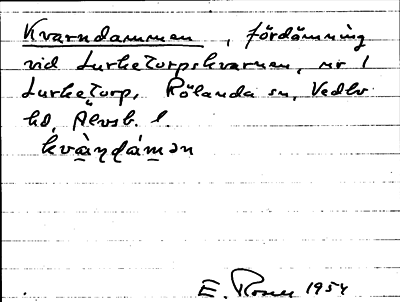 Kvarndammen, fördämning
vid Lurketorpskvarnen, nr 1
Lurketorp, Rölanda sn, Vedbo
hd, Älvsb. l.
kvàṇdámən
E. Rosell 1954